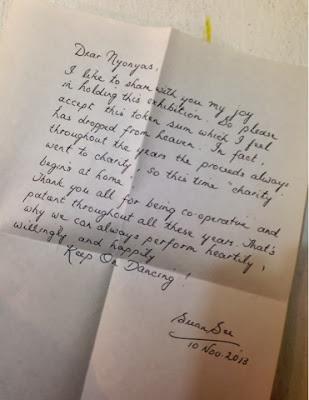 Dear Nyonyas,
I like to share with you my joy
in holding this exhibition. So please
accept this token sum which I feel
has dropped from heaven. In fact,
throughout the years the proceeds always
went to charity, so this time "charity
begins at home".
Thank you all for being co-operative and
patient throughout all these years. That's
why we can always perform heartily,
willingly and happily.
Keep On Dancing!
10 Nov. 2013